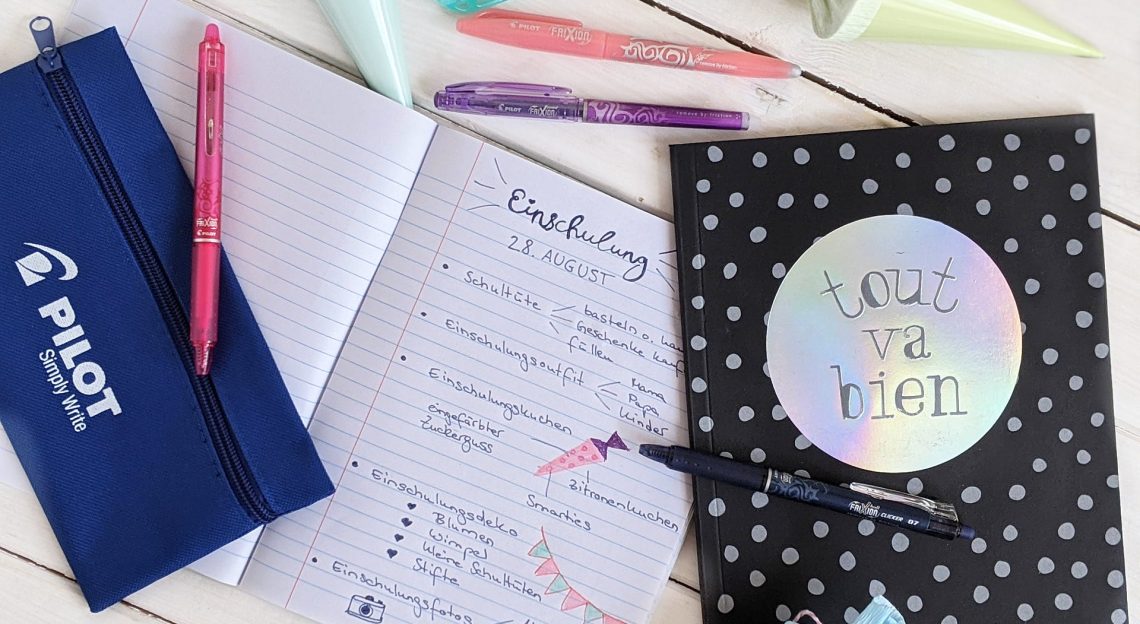 PILOT
Simply Write
FRIXION
PILOT
PILOT FRIXION
remove by friction
PILOT FRIXION
remove by friction
Einschulung
28. AUGUST
• Schultüte
basteln o.
Geschenke
füllen
• Einschulungsoutfit
Mama
Papa
Kinder
• Einschulungskuchen
eingefärbter
Zuckerguss
Zitronenkuchen
Smarties
• Einschulungsdeko
♥ Blumen
♥ Wimpel
♥ kleine Schultüten
♥ Stifte
• Einschulungsfotos
tout
va
bien
FRIXION CLICKER 07